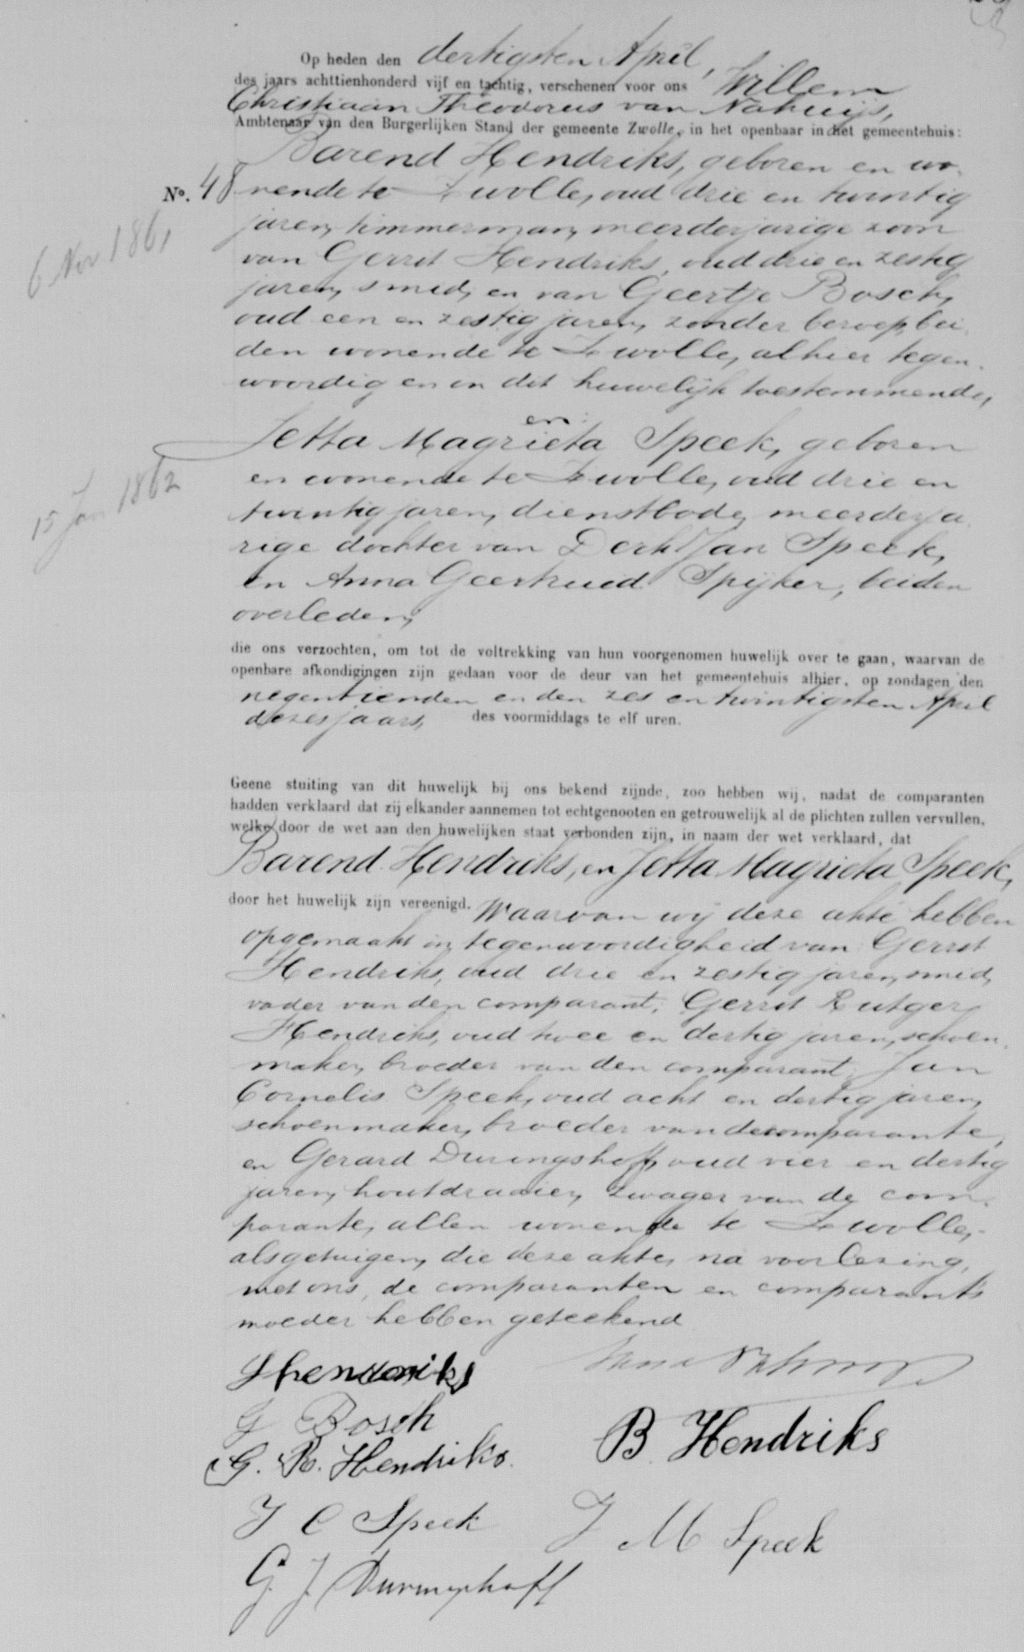 Op heden den dertigsten April,
des jaars achttienhonderd vijf en tachtig, verschenen voor ons Willem
Christiaan Theodorus van Nahuijs,
Ambtenaar van den Burgerlijken Stand der gemeente Zwolle, in het openbaar in het gemeentehuis:
Barend Hendriks, geboren en wo-
No. 48 nende te Zwolle, oud drie en twintig
6 Nov 1861
jaren, timmerman, meerderjarige zoon
van Gerrit Hendriks, oud drie en zestig
jaren, smid, en van Geertje Bosch,
oud een en zestig jaren, zonder beroep, bei-
den wonende te Zwolle, alhier tegen-
woordig en in dit huwelijk toestemmende,
en:
Jetta Magrieta Speek, geboren
en wonende te Zwolle, oud drie en
15 Jan 1862
twintig jaren, dienstbode, meerderja-
rige dochter van Derk Jan Speek,
en Anna Geertruid Spijker, beiden
overleden,
die ons verzochten, om tot de voltrekking van hun voorgenomen huwelijk over te gaan, waarvan de
openbare afkondigingen zijn gedaan voor de deur van het gemeentehuis alhier, op zondagen den
negentienden en den zes en twintigsten April
dezes jaars, des voormiddags te elf uren.
Geene stuiting van dit huwelijk bij ons bekend zijnde, zoo hebben wij, nadat de comparanten
hadden verklaard dat zij elkander aannemen tot echtgenooten en getrouwelijk al de plichten zullen vervullen,
welke door de wet aan den huwelijken staat verbonden zijn, in naam der wet verklaard, dat
Barend Hendriks, en Jetta Magrieta Speek,
door het huwelijk zijn vereenigd. Waarvan wij deze akte hebben
opgemaakt in tegenwoordigheid van Gerrit
Hendriks, oud drie en zestig jaren, smid,
vader van den comparant; Gerrit Rutger
Hendriks, oud twee en dertig jaren, schoen-
maker, broeder van den comparant; Jan
Cornelis Speek, oud acht en dertig jaren,
schoenmaker, broeder van de comparante,
en Gerard Duringshoff, oud vier en dertig
jaren, houtdraaier, zwager van de com-
parante, allen wonende te Zwolle,
als getuigen, die deze akte, na voorlezing,
met ons, de comparanten en comparants
moeder hebben geteekend
G Hendriks
G Bosch
G. R. Hendriks.
B. Hendriks
J C Speek
J M Speek
G. J.